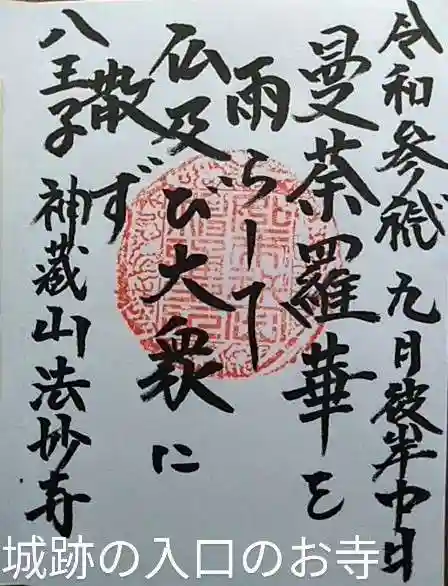 令和参年九月彼岸中日
曼荼羅華を
雨らして
仏及び大衆に
散ず
八王子 神蔵山法妙寺
城跡の入口のお寺